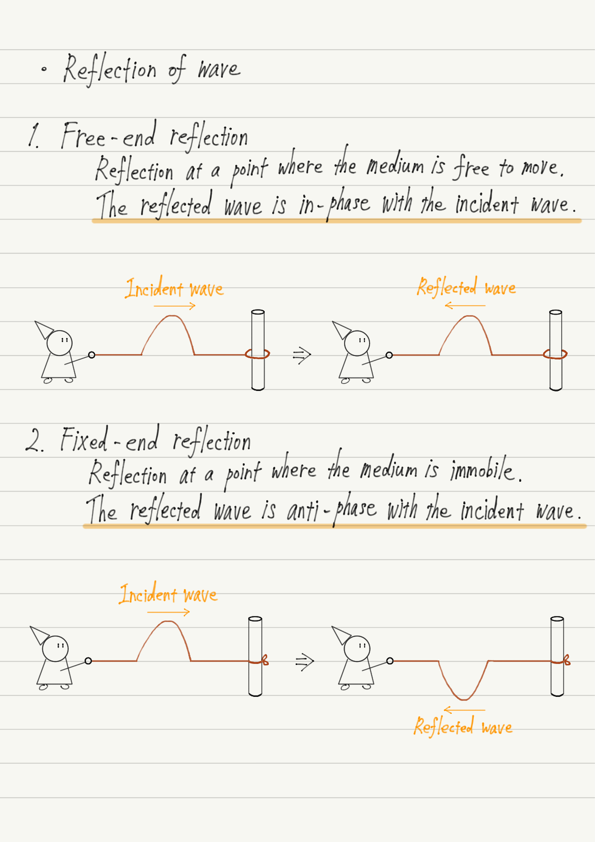 • Reflection of wave
1. Free-end reflection
Reflection at a point where the medium is free to move.
The reflected wave is in-phase with the incident wave.
Incident wave
Reflected wave
2. Fixed-end reflection
Reflection at a point where the medium is immobile.
The reflected wave is anti-phase with the incident wave.
Incident wave
Reflected wave